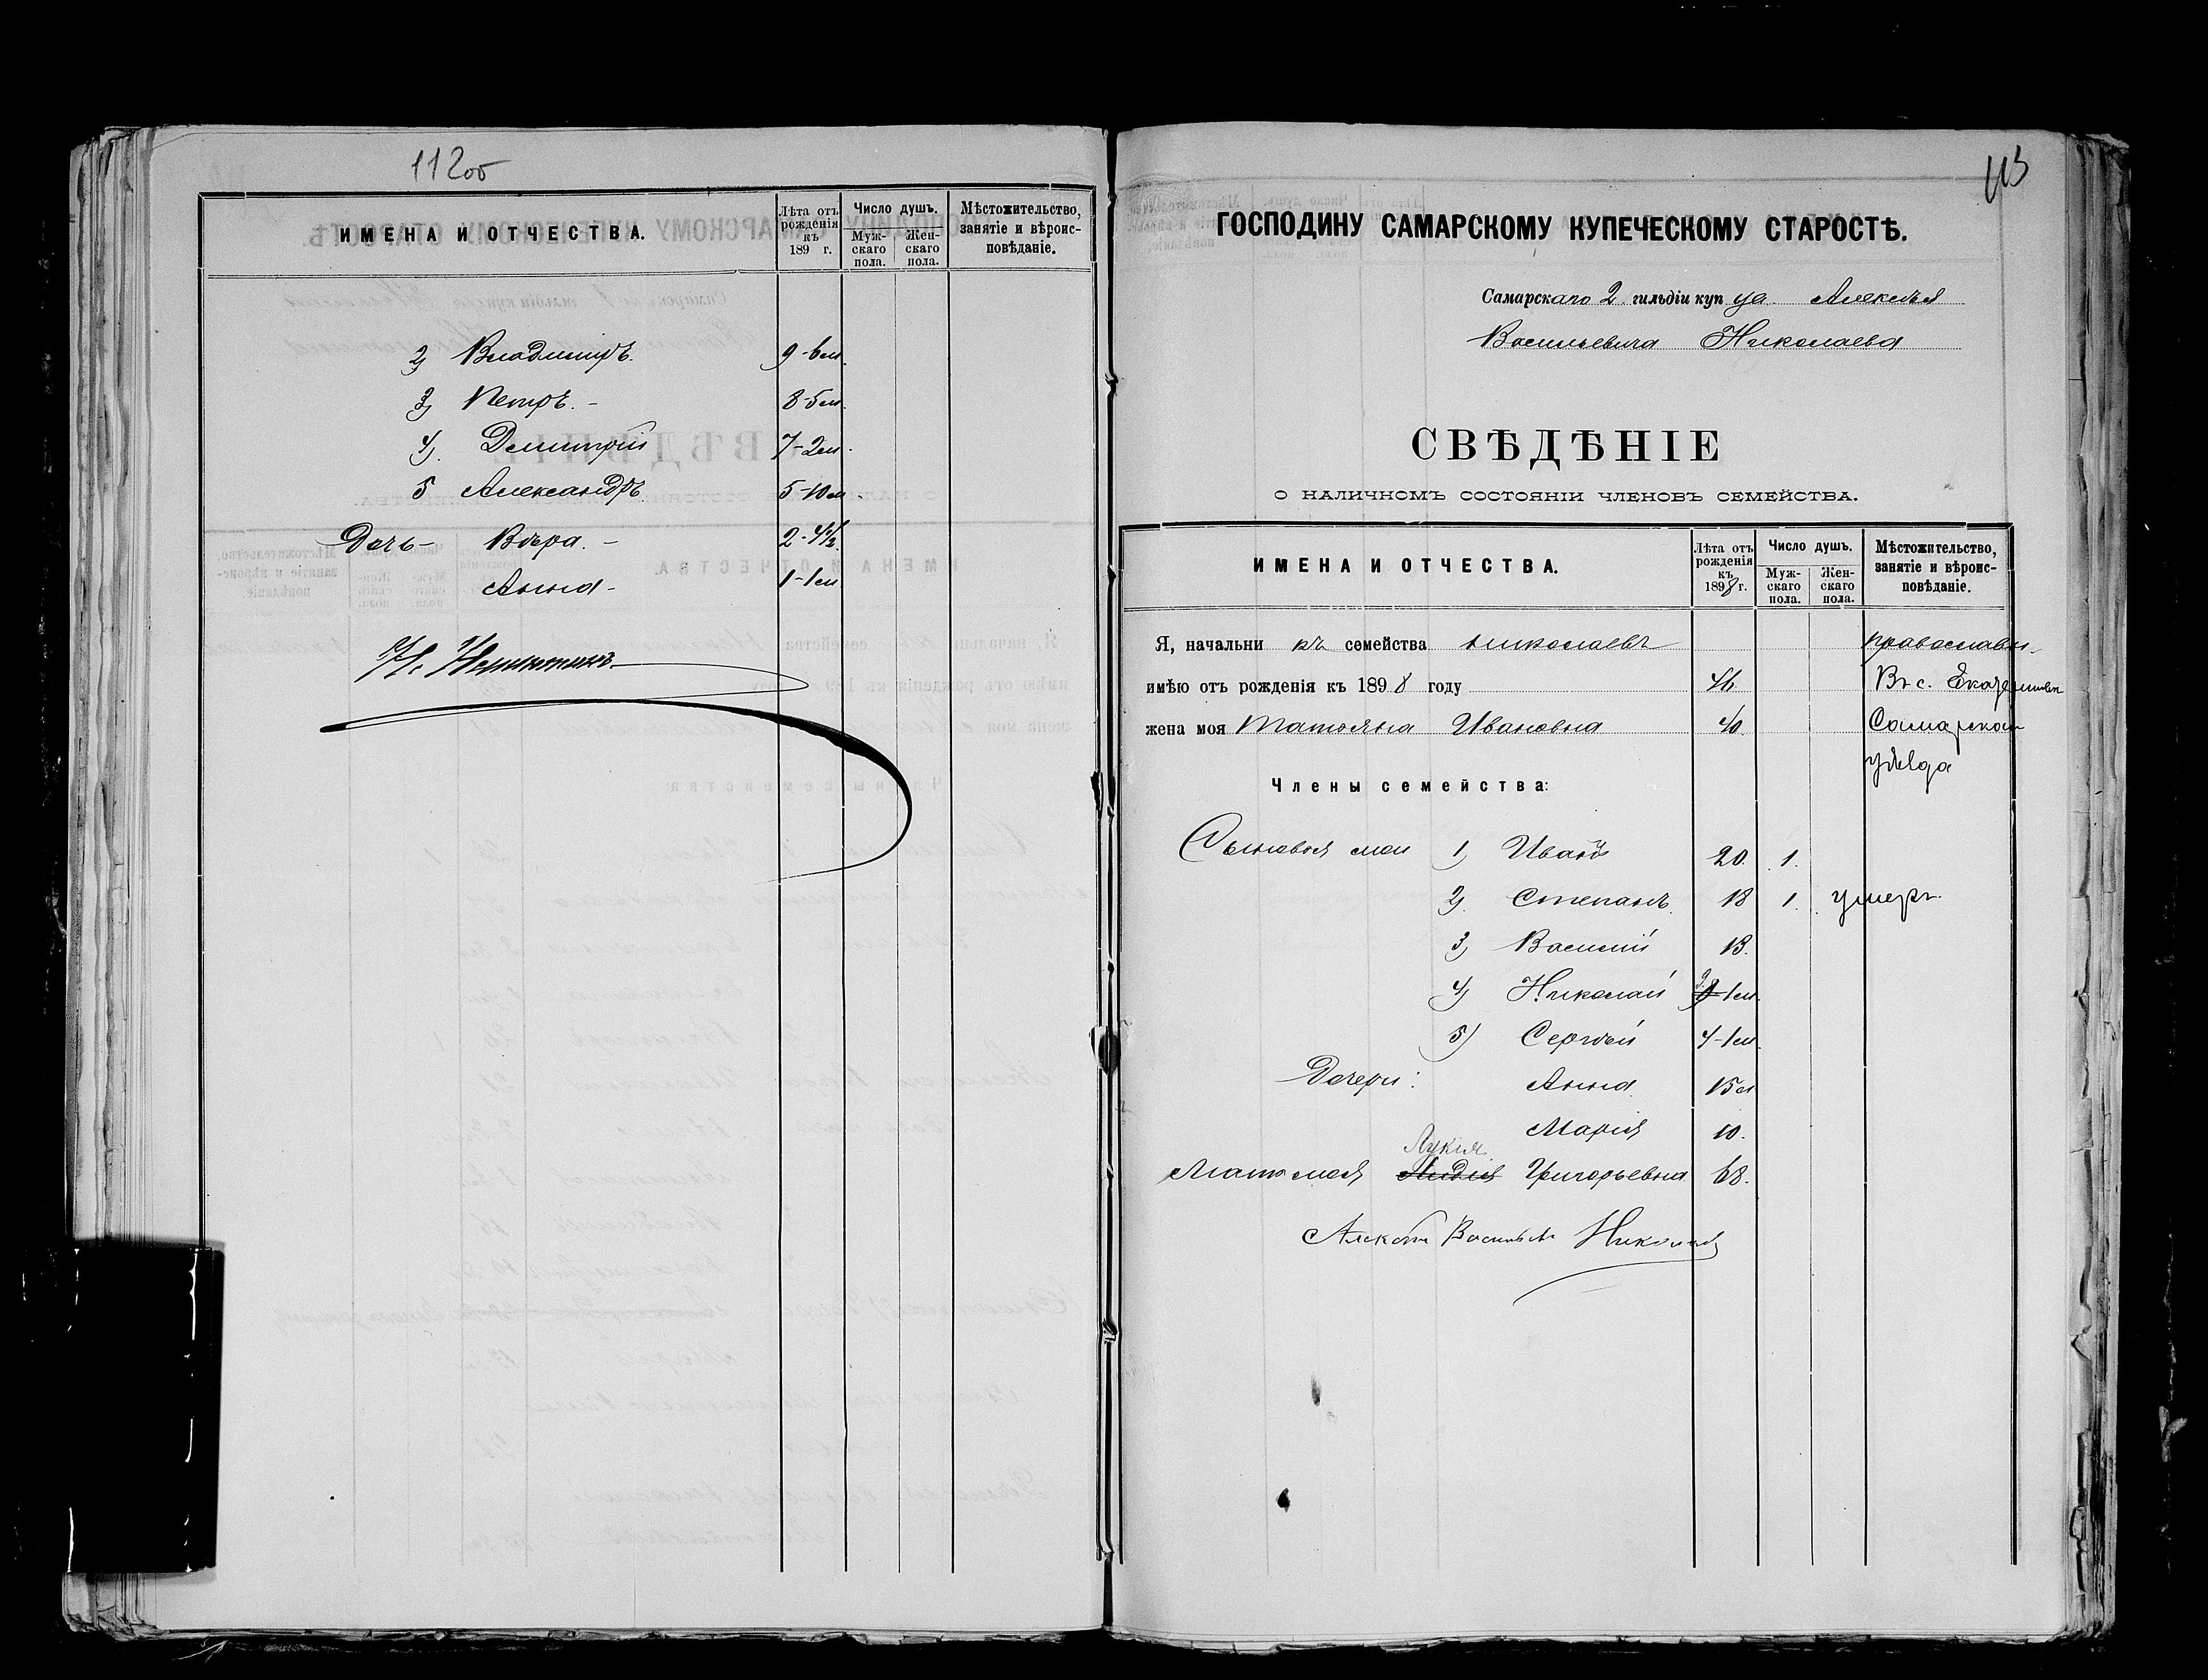 112об
ИМЕНА И ОТЧЕСТВА.
Лѣта отъ рожденія къ 189 г.
Число душъ.
Мужскаго пола.
Женскаго пола.
Мѣстожительство, занятіе и вѣроисповѣданіе.
2) Владиміръ. 9-6м.
3) Петръ. - 8-5м.
4) Димитрій 7-2м.
5 Александръ 5-10м.
Дочь - Вѣра. - 2-4½
Анна - 1-1м
113
ГОСПОДИНУ САМАРСКОМУ КУПЕЧЕСКОМУ СТАРОСТѢ.
Самарскаго 2 гильдіи купца Алексѣя
Васильевича Николаева
СВѢДѢНІЕ
О НАЛИЧНОМЪ СОСТОЯНІИ ЧЛЕНОВЪ СЕМЕЙСТВА.
ИМЕНА И ОТЧЕСТВА.
Лѣта отъ рожденія къ 1898 г.
Число душъ.
Мужскаго пола.
Женскаго пола.
Мѣстожительство, занятіе и вѣроисповѣданіе.
Я, начальникъ семейства Николаевъ православн.
имѣю отъ рожденія къ 1898 году 46. Въ с. Екатериновк
жена моя Татьяна Ивановна 40 Самарскаго
уѣзда
Члены семейства:
Сыновья мои 1) Иванъ 20. 1.
2) Степанъ 18 1. умеръ.
3) Василій 13.
4) Николай 9-1м.
5) Сергѣй 4-1м.
Дочери: Анна 15л
Марія 10.
Лукія
Мать моя Лидія Григорьевна 68.
Алексѣй Васильевъ Николаевъ